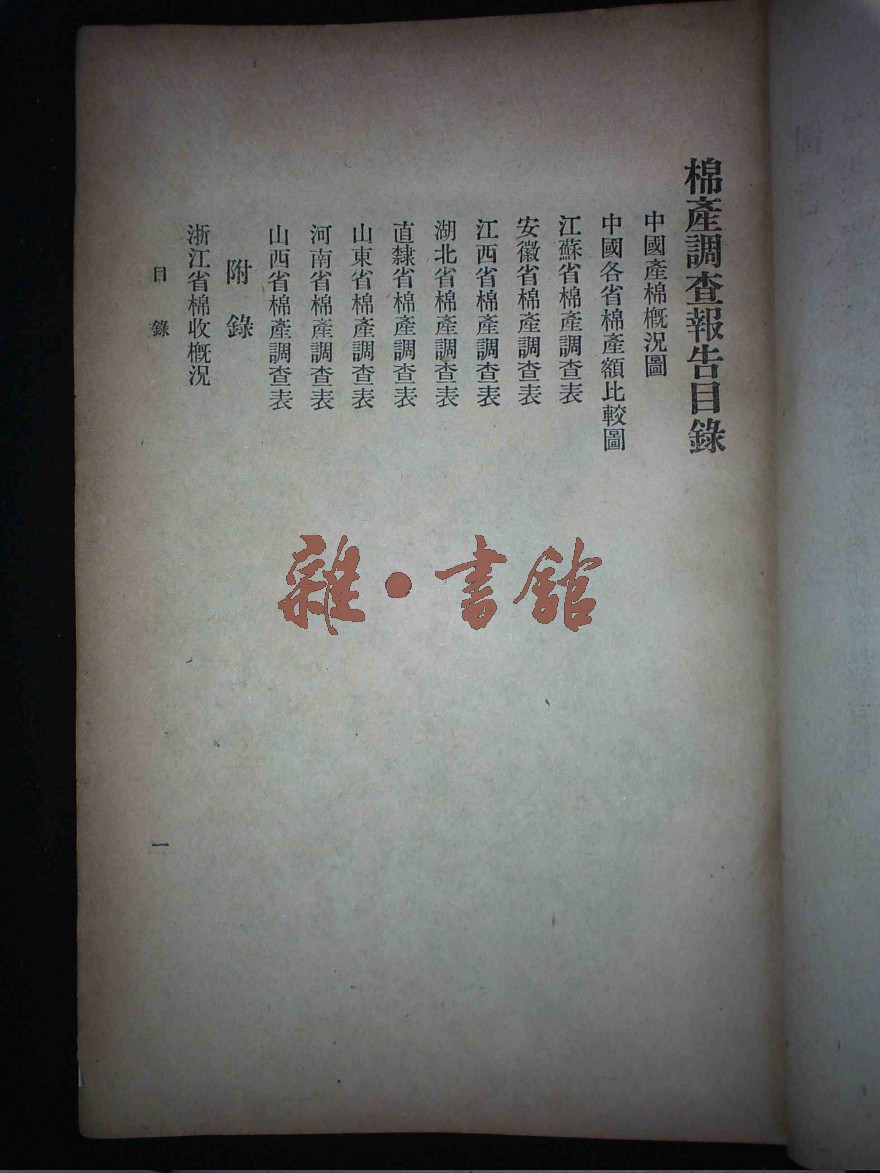 棉產調查報告目錄
中國產棉概況圖
中國各省棉產額比較圖
江蘇省棉產調查表
安徽省棉產調查表
江西省棉產調查表
湖北省棉產調查表
直隸省棉產調查表
山東省棉產調查表
河南省棉產調查表
山西省棉產調查表
附錄
浙江省棉收概況
目錄
一
雜·書館